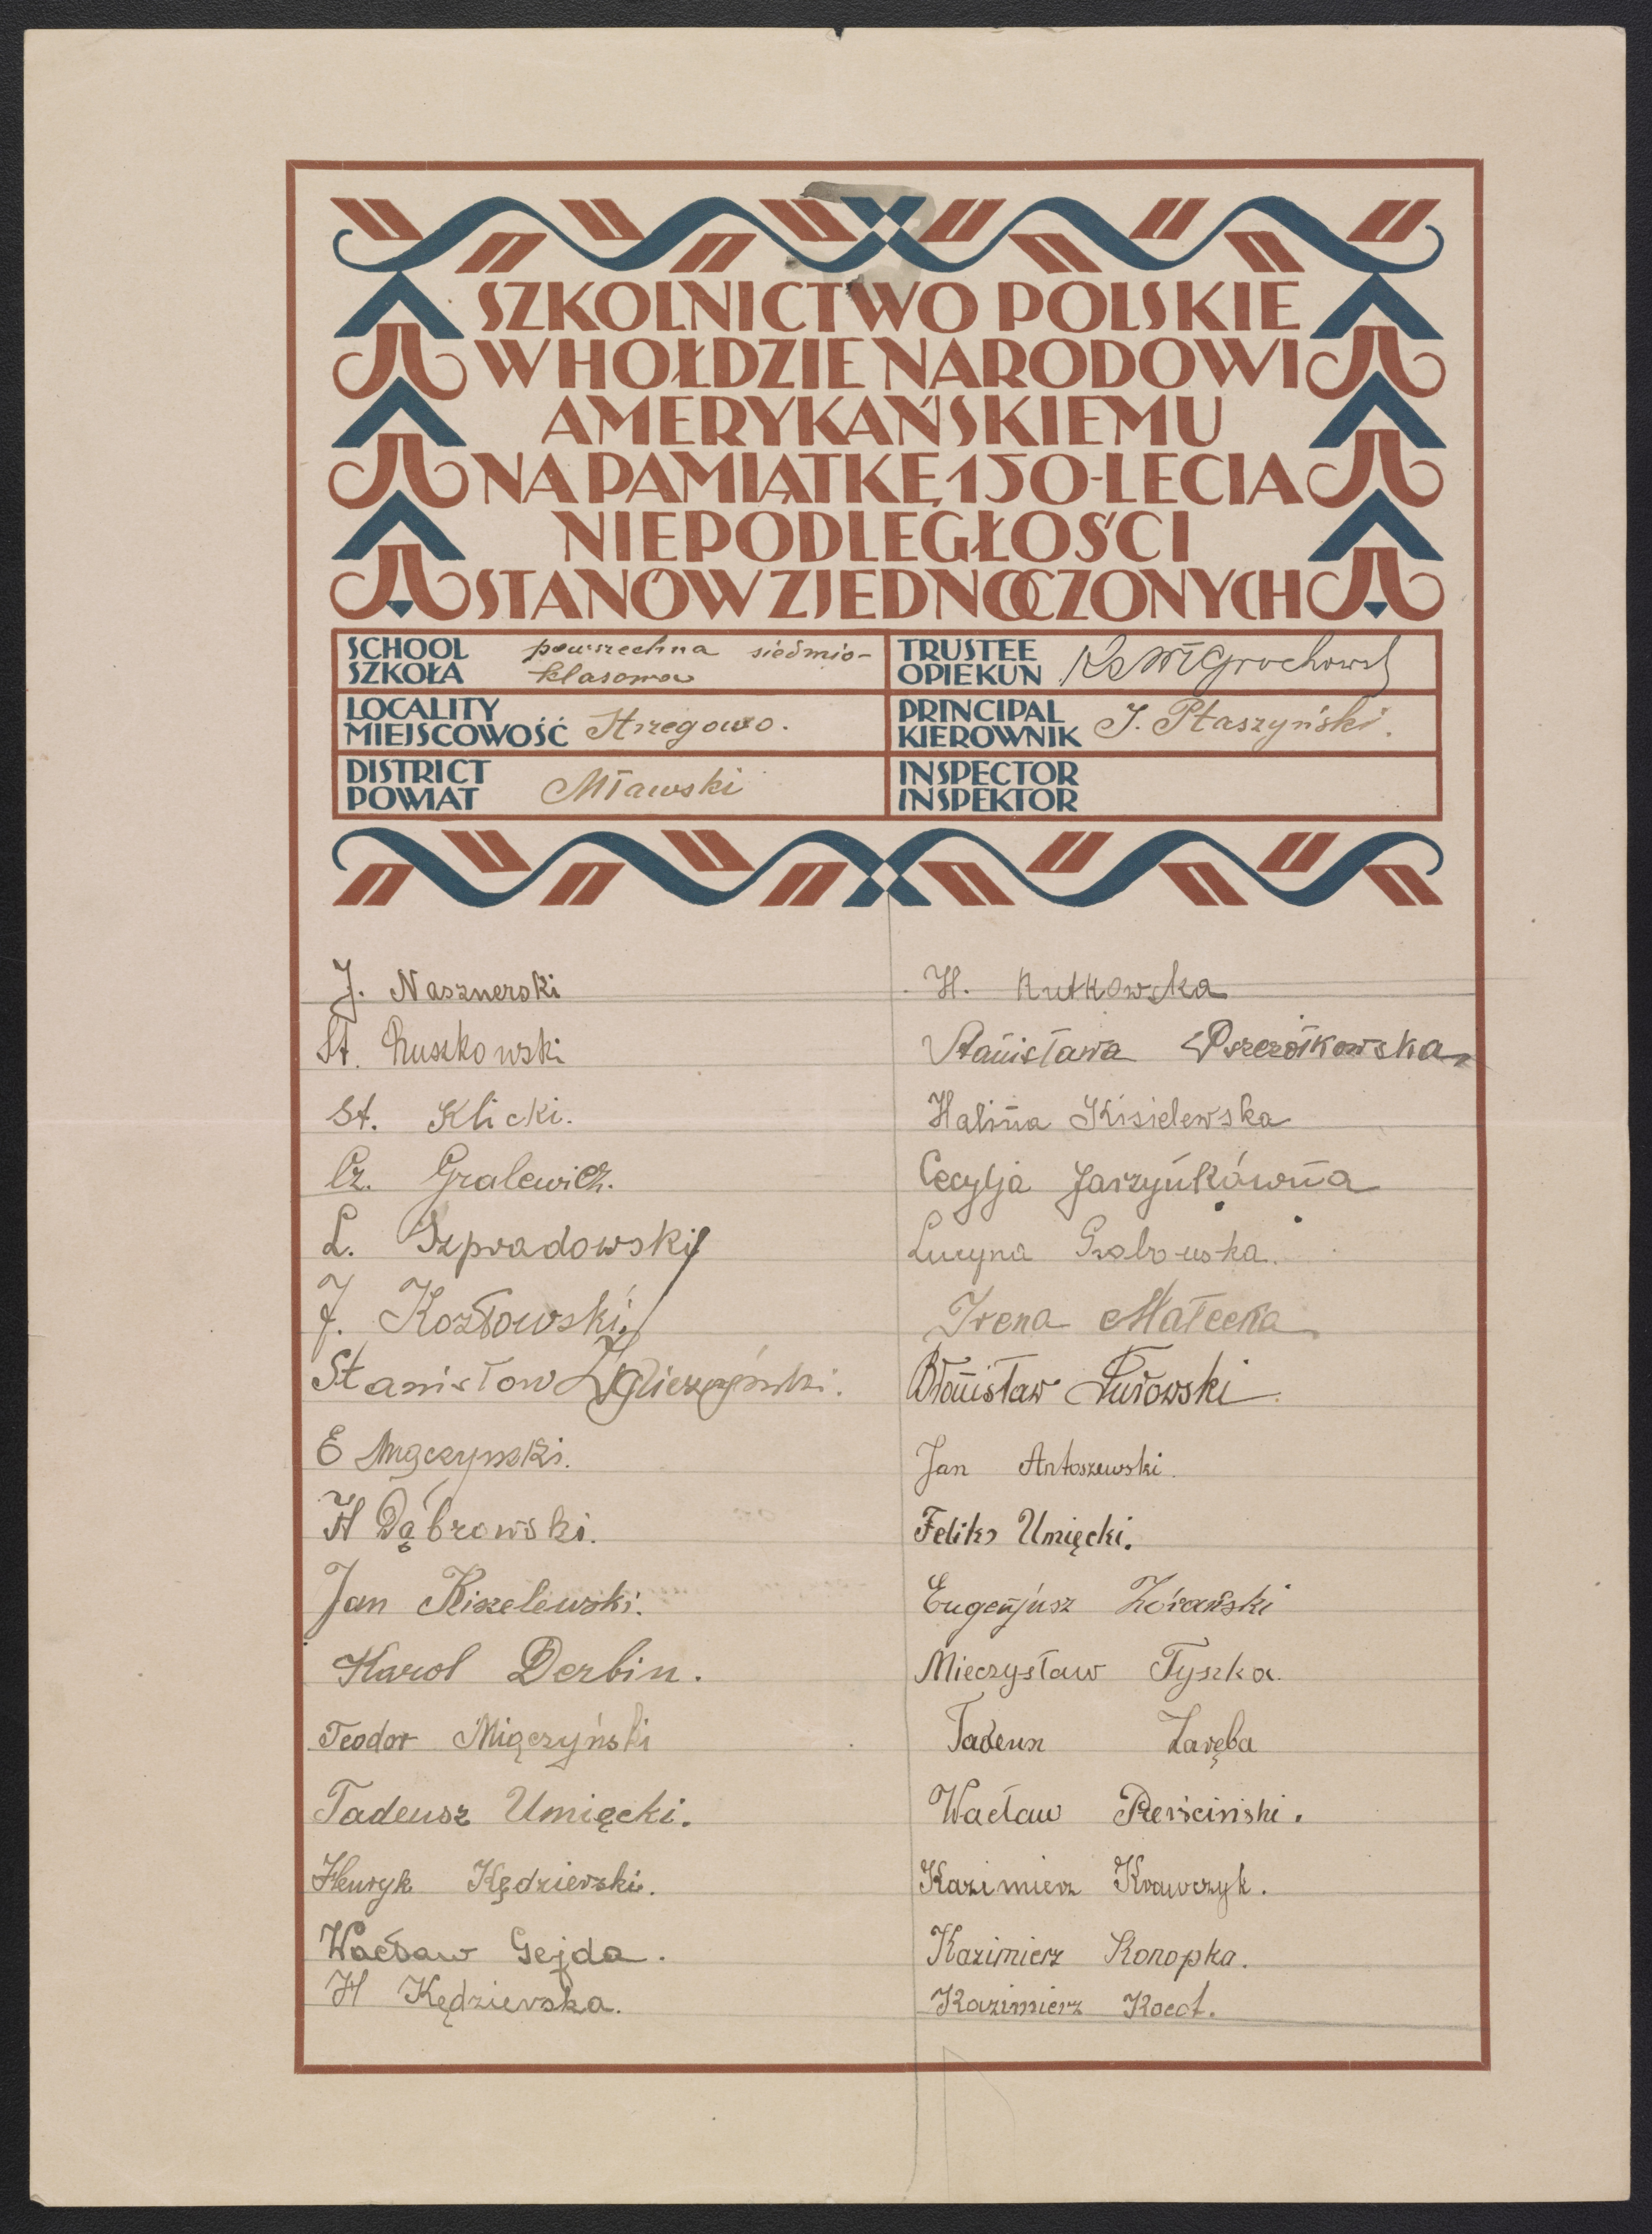 SZKOLNICTWO POLSKIE
W HOŁDZIE NARODOWI
AMERYKAŃSKIEMU
NA PAMIĄTKĘ 150-LECIA
NIEPODLEGŁOŚCI
STANÓW ZJEDNOCZONYCH
SCHOOL
SZKOŁA
powszechna siedmio-
klasowa
TRUSTEE
OPIEKUN
Ks Wł Grochowsk
LOCALITY
MIEJSCOWOŚĆ
Strzegowo.
PRINCIPAL
KIEROWNIK
J. Ptaszyński.
DISTRICT
POWIAT
Mławski
INSPECTOR
INSPEKTOR
J. Nasznerski
St. Ruszkowski
St. Klicki.
Cz. Gralewicz.
L. Szpradowski
J. Kozłowski.
Stanisław
E Mączyński.
H Dąbrowski.
Jan Kiszelewski.
Karol Derbin.
Teodor Miączyński
Tadeusz Umięcki.
Henryk Kędzierski.
Wacław Gejda.
H Kędzierska.
H. Rutkowska
Stanisława Pszczółkowska
Halina Kisielewska
Cecylja Jarzynkówna
Lucyna Grabowska.
Irena Małecka
Bronisław Żurowski
Jan Antoszewski.
Feliks Umięcki.
Eugenjusz Żórański
Mieczysław Tyszka.
Tadeusz Zaręba
Wacław Pierściński.
Kazimierz Krawczyk.
Kazimierz Konopka.
Kazimierz Kocot.